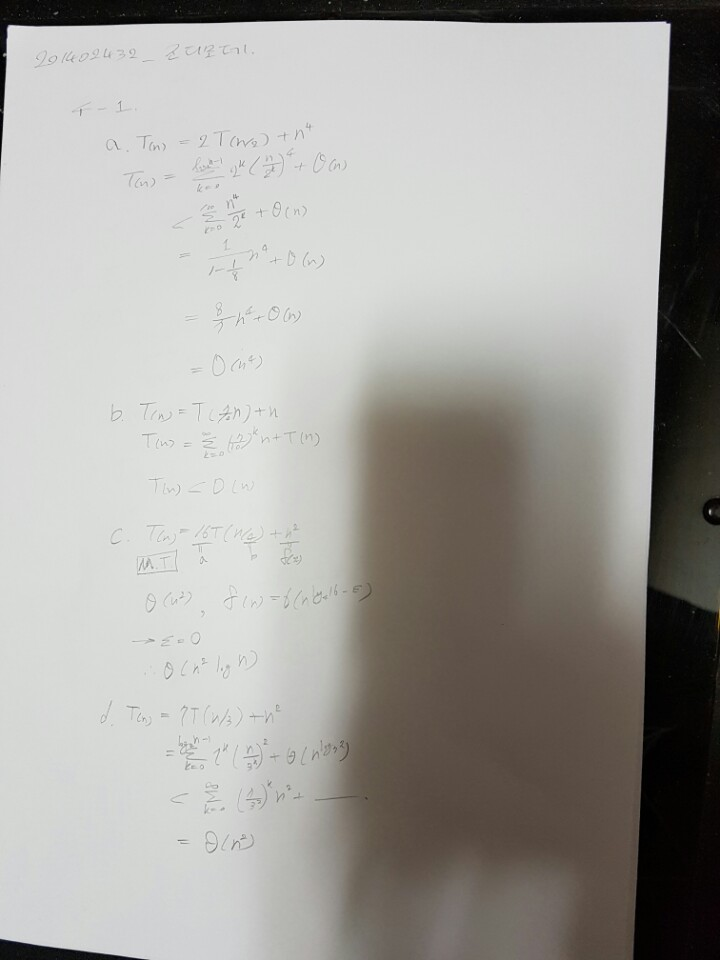 201402432_
4-1.
a. T(n) = 2T(n/2) + n⁴
T(n) = Σ_{k=0}^{log n-1} 2^k (n/2^k)⁴ + Θ(n)
< Σ_{k=0}^{∞} n⁴/2^k + Θ(n)
= 1/(1-1/8) n⁴ + Θ(n)
= 8/7 n⁴ + Θ(n)
= Θ(n⁴)
b. T(n) = T( n) + n
T(n) = Σ_{k=0} (7/10)^k n + T(n)
T(n) = Θ(n)
c. T(n) = 16T(n/4) + n²
M.T a b f(n)
Θ(n²), f(n) = Θ(n^{log 16 - ε})
→ ε = 0
∴ Θ(n² log n)
d. T(n) = 7T(n/3) + n²
= Σ_{k=0}^{log n-1} 7^k (n/3^k)² + Θ(n^{log₃7})
< Σ_{k=0}^{∞} (7/3²)^k n² + ___.
= Θ(n²)